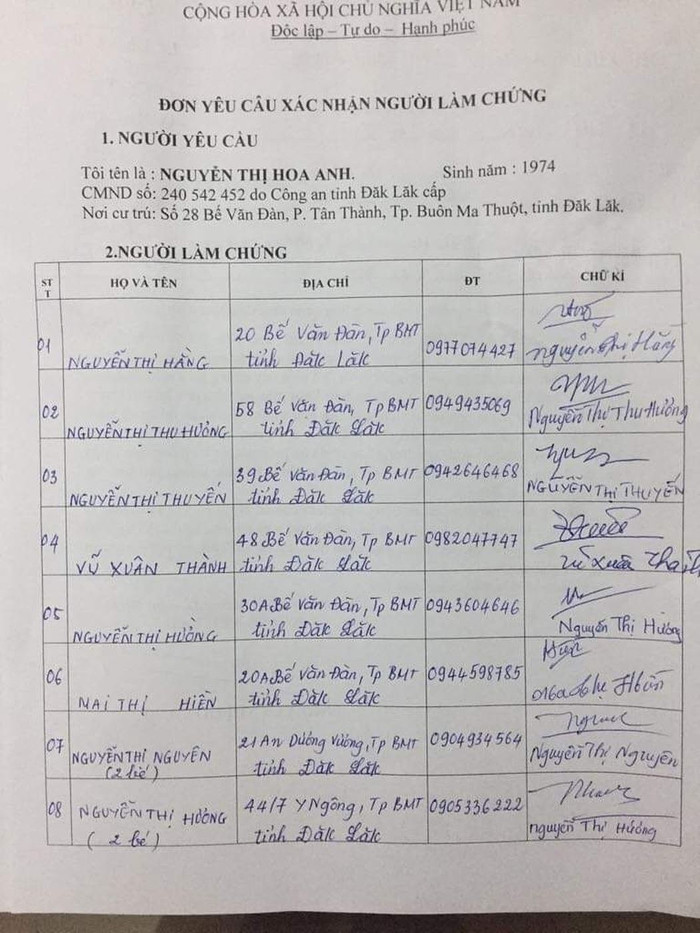 CỘNG HÒA XÃ HỘI CHỦ NGHĨA VIỆT NAM
Độc lập – Tự do – Hạnh phúc
ĐƠN YÊU CẦU XÁC NHẬN NGƯỜI LÀM CHỨNG
1. NGƯỜI YÊU CẦU
Tôi tên là : NGUYỄN THỊ HOA ANH. Sinh năm : 1974
CMND số: 240 542 452 do Công an tỉnh Đăk Lăk cấp
Nơi cư trú: Số 28 Bế Văn Đàn, P. Tân Thành, Tp. Buôn Ma Thuột, tỉnh Đăk Lăk.
2.NGƯỜI LÀM CHỨNG
STT HỌ VÀ TÊN ĐỊA CHỈ ĐT CHỮ KÍ
01 NGUYỄN THỊ HẰNG 20 Bế Văn Đàn, Tp BMT 0977074427 nguyễn thị Hằng
tỉnh Đăk Lăk
02 NGUYỄN THỊ THU HƯỜNG 58 Bế Văn Đàn, Tp BMT 0949435069 Nguyễn Thị Thu Hường
tỉnh Đăk Lăk
03 NGUYỄN THỊ THUYẾN 39 Bế Văn Đàn, Tp BMT 0942646468 NGUYỄN THỊ THUYẾN
tỉnh Đăk Lăk
04 VŨ XUÂN THÀNH 48 Bế Văn Đàn, Tp BMT 0982047747 Vũ Xuân Thành
tỉnh Đăk Lăk
05 NGUYỄN THỊ HƯỜNG 30A Bế Văn Đàn, Tp BMT 0943604646 Nguyễn Thị Hường
tỉnh Đăk Lăk
06 MAI THỊ HIỀN 20A Bế Văn Đàn, Tp BMT 0944598785 Hiền
tỉnh Đăk Lăk
07 NGUYỄN THỊ NGUYÊN 21 An Dương Vương, Tp BMT 0904934564 Nguyễn Thị Nguyên
(2 bé) tỉnh Đăk Lăk
08 NGUYỄN THỊ HƯỜNG 44/7 Y Ngông, Tp BMT 0905336222 nguyễn Thị Hường
(2 bé) tỉnh Đăk Lăk